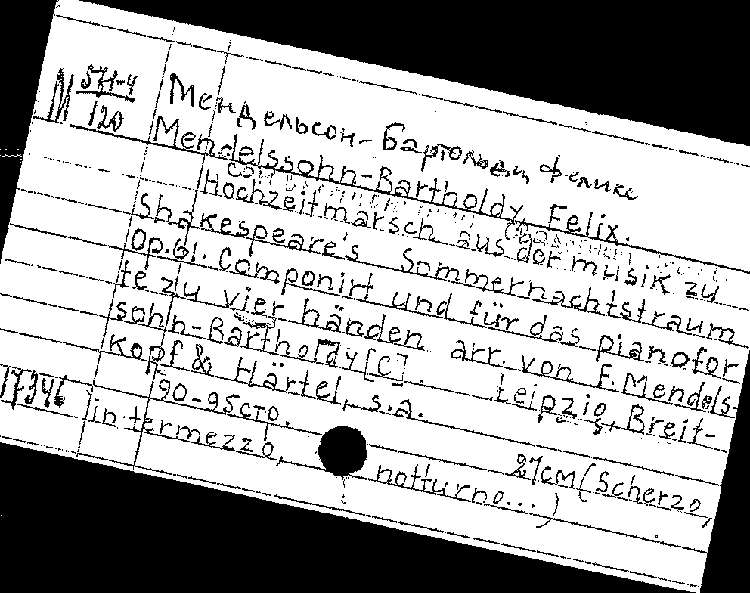 М 571-4/120
Мендельсон-Бартольди Феликс
Mendelssohn-Bartholdy, Felix.
hochzeitmarsch aus der musik zu
Shakespeare's Sommernachtstraum
Op.61. Componirt und für das pianofor
te zu vier händen arr. von F. Mendels-
sohn-Bartholdy[C]. Leipzig, Breit-
kopf & Härtel, s.a.
17346 90-95cтo. 27cm (Scherzo,
intermezzo, notturno...)